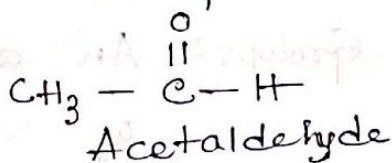 O
||
CH3 — C — H
Acetaldehyde